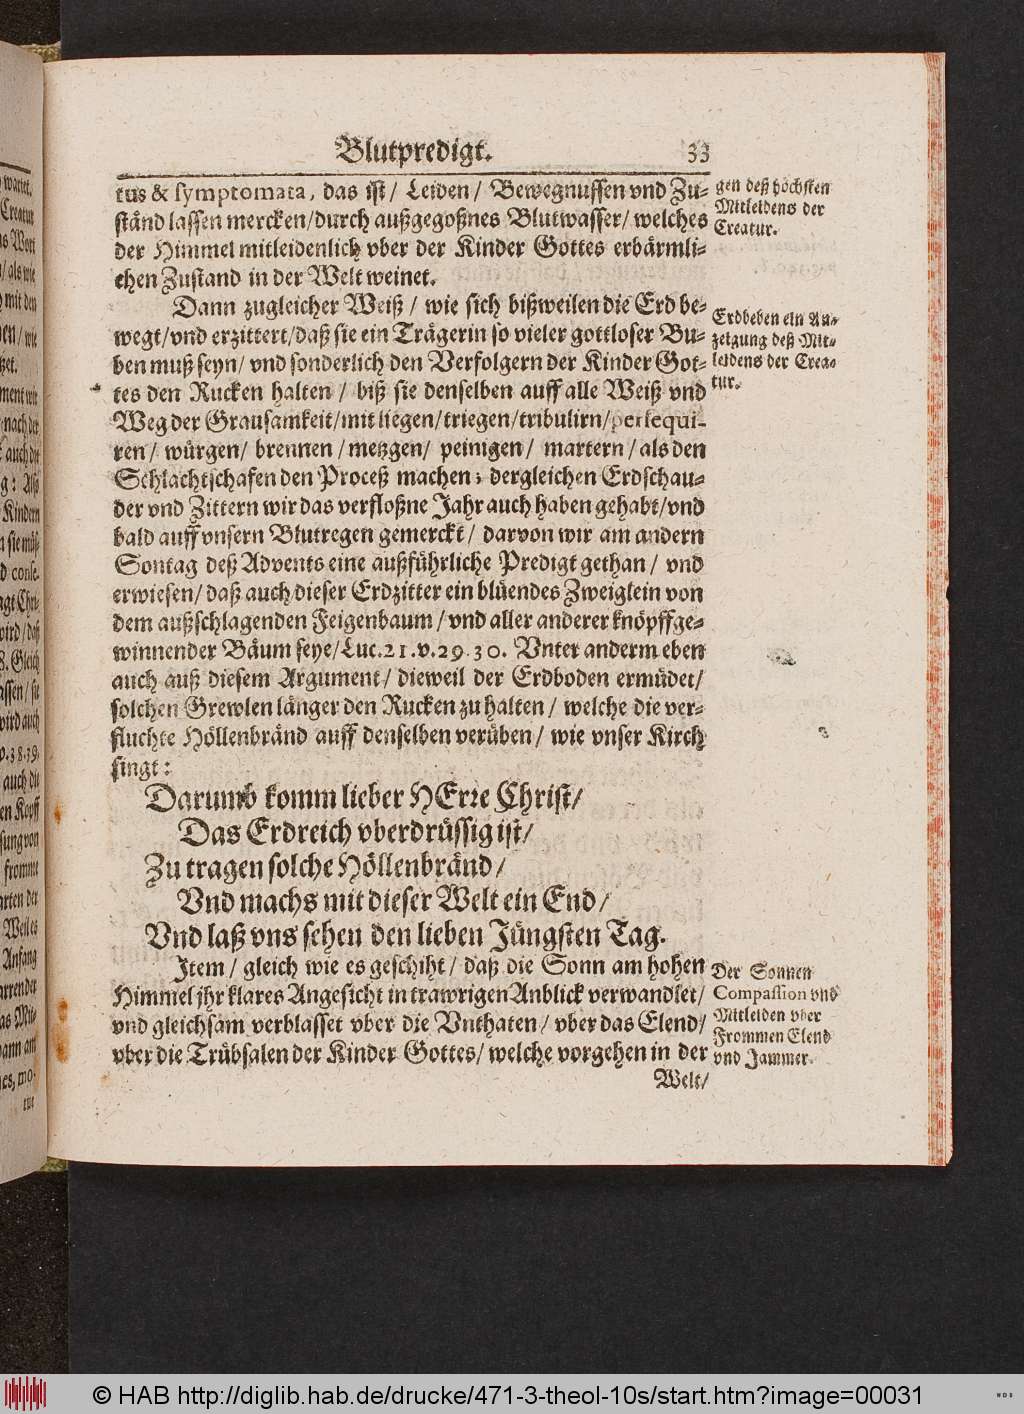 Blutpredigt. 33
tus & symptomata, das ist/ Leiden/ Bewegnussen vnd Zu-
ständ lassen mercken/durch außgegoßnes Blutwasser/ welches
der Himmel mitleidenlich vber der Kinder Gottes erbärmli-
chen Zustand in der Welt weinet.
gen deß höchsten
Mitleidens der
Creatur.
Dann zugleicher Weiß / wie sich bißweilen die Erd be-
wegt/vnd erzittert/daß sie ein Trägerin so vieler gottloser Bu-
ben muß seyn/ vnd sonderlich den Verfolgern der Kinder Got-
tes den Rucken halten / biß sie denselben auff alle Weiß vnd
Weg der Grausamkeit/mit liegen/triegen/tribulirn/persequi-
ren/ würgen/ brennen/metzgen/ peinigen/ martern/als den
Schlachtschafen den Proceß machen; dergleichen Erdschau-
der vnd Zittern wir das verfloßne Jahr auch haben gehabt/vnd
bald auff vnsern Blutregen gemerckt/ darvon wir am andern
Sontag deß Advents eine außführliche Predigt gethan/ vnd
erwiesen/ daß auch dieser Erdzitter ein blüendes Zweiglein von
dem außschlagenden Feigenbaum/vnd aller anderer knöpffge-
winnender Bäum seye/Luc.21.v.29.30. Vnter anderm eben
auch auß diesem Argument/ dieweil der Erdboden ermüdet/
solchen Grewlen länger den Rucken zu halten/ welche die ver-
fluchte Höllenbränd auff denselben verüben/ wie vnser Kirch
singt:
Erdbeben ein An-
zeigung deß Mit-
leidens der Crea-
tur.
Darumb komm lieber HErre Christ/
Das Erdreich vberdrüssig ist/
Zu tragen solche Höllenbränd/
Vnd machs mit dieser Welt ein End/
Vnd laß vns sehen den lieben Jüngsten Tag.
Item/ gleich wie es geschiht/ daß die Sonn am hohen
Himmel jhr klares Angesicht in trawrigen Anblick verwandlet/
vnd gleichsam verblasset vber die Vnthaten/ vber das Elend/
vber die Trübsalen der Kinder Gottes/ welche vorgehen in der
Welt/
Der Sonnen
Compassion vnd
Mitleiden vber
Frommen Elend
vnd Jammer.
© HAB http://diglib.hab.de/drucke/471-3-theol-10s/start.htm?image=00031